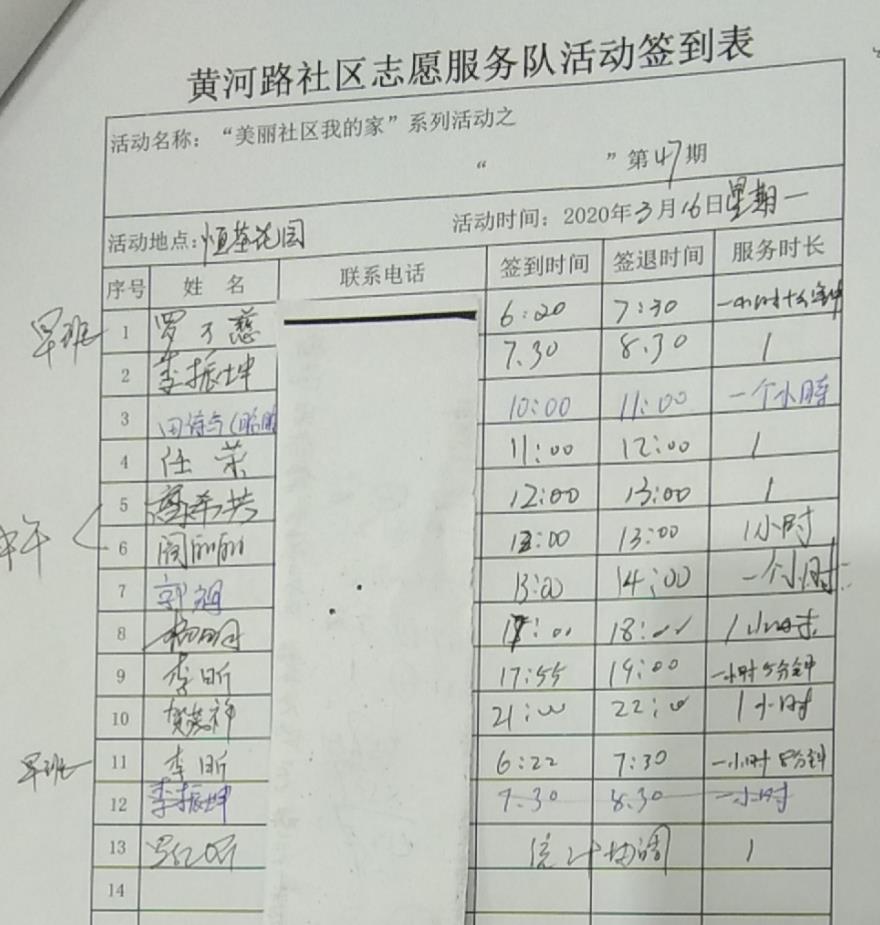 黄河路社区志愿服务队活动签到表
活动名称：“美丽社区我的家”系列活动之
“ ”第47期
活动地点：恒基花园 活动时间：2020年3月16日星期一
序号 姓名 联系电话 签到时间 签退时间 服务时长
早班 1 罗 慈 6:20 7:30 一小时十分钟
2 李振坤 7.30 8.30 1
3 田 10:00 11:00 一个小時
4 任荣 11:00 12:00 1
5 12:00 13:00 1
中午 6 阎丽丽 12:00 13:00 1小时
7 郭 13:00 14:00 一个小时
8 杨明 17:00 18:00 1小时
9 李昕 17:55 19:00 一小时5分钟
10 贺 祥 21:00 22:00 1小时
早班 11 李昕 6:22 7:30 一小时8分钟
12 李振坤 7.30 8.30 一小时
13 统计协调 1
14